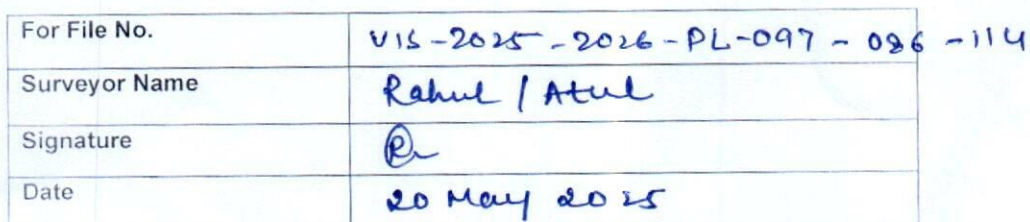 For File No. VIS-2025-2026-PL-097-086-114
Surveyor Name Rahul / Atul
Signature
Date 20 May 2025